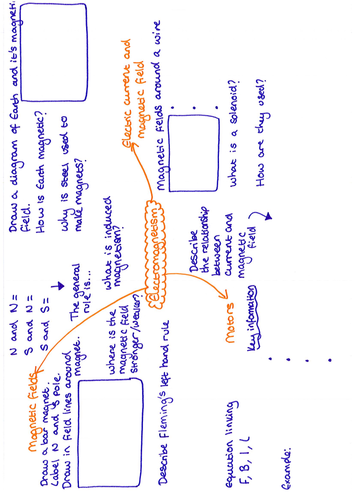 Electromagnetism
Magnetic fields
Draw a bar magnet
Label N and S pole.
Draw in field lines around
magnet.
N and N =
S and N =
S and S =
The general
rule is...
where is the
magnetic field
stronger/weaker?
what is induced
magnetism?
Draw a diagram of Earth and it's magnetic
field.
How is Earth magnetic?
why is steel used to
make magnets?
Electric current and
magnetic field
Magnetic fields around a wire
what is a solenoid?
How are they used?
Describe Fleming's left hand rule
equation linking
F, B, I, L
Example:
Motors
Key information
Describe
the relationship
between
current and
magnetic
field